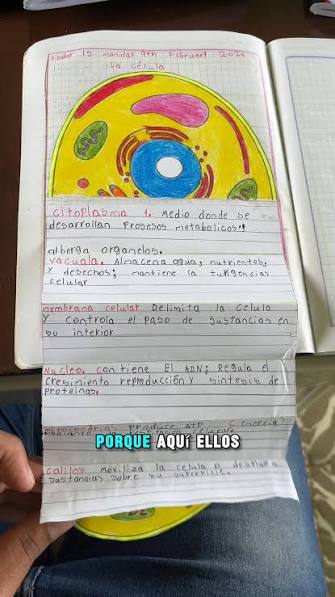 today is monday 9th February
La Célula
citoplasma 1. Medio donde se
desarrollan Prosesos metabolicos"
alberga organelos.
vacuola. Almacena agua, nutrientes,
Y desechos; mantiene la turgencias
celular
membrana celular Delimita la Celula
Y controla el paso de Sustancias en
su interior
Nucleo. contiene El ADN; Regula el
Cresimiento reproducción y sintesis de
Proteinas.
Produce ATP (energia)
PORQUE AQUÍ ELLOS
moviliza la celula o
sustancias sobre su superficie.